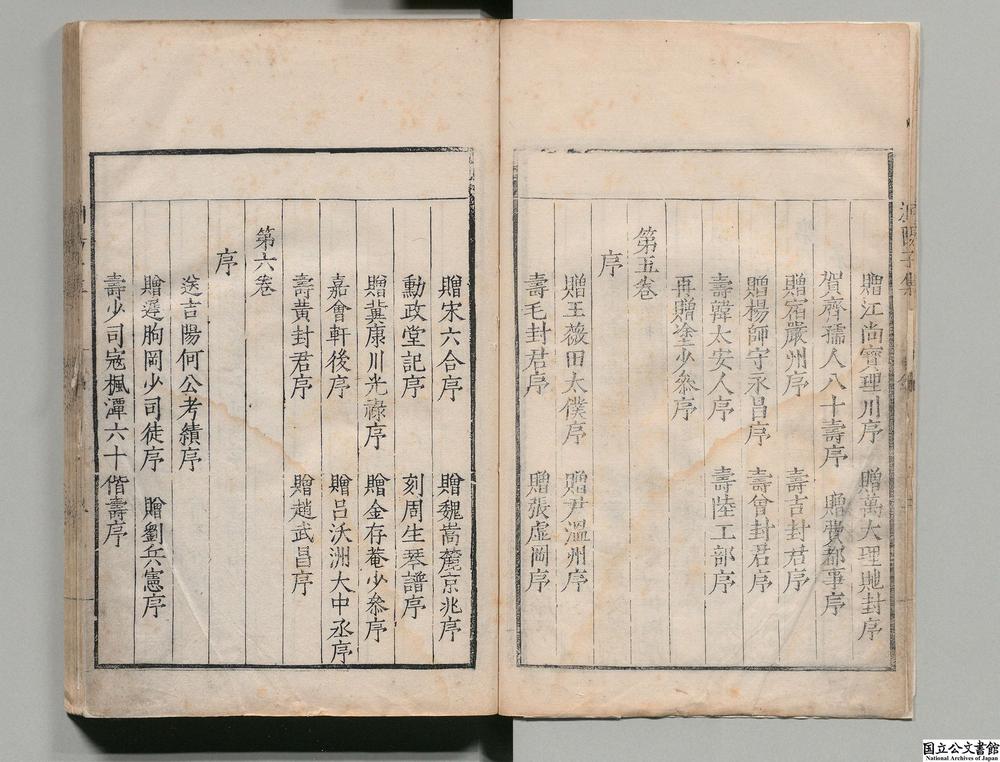 贈江尚寶理川序　贈萬大理貤封序
賀齊孺人八十壽序　贈費都事序
贈宿嚴州序　壽吉封君序
贈楊師守永昌序　壽曾封君序
壽韓太安人序　壽陸工部序
再贈塗少叅序
第五卷
序
贈王薇田太僕序　贈尹溫州序
壽毛封君序　贈張虛岡序
贈宋六合序　贈魏嵩麓京兆序
勳政堂記序　刻周生琴譜序
贈冀康川光祿序　贈金存菴少叅序
嘉會軒後序　贈呂沃洲大中丞序
壽黃封君序　贈趙武昌序
第六卷
序
送吉陽何公考績序
贈遲朐岡少司徒序　贈劉兵憲序
壽少司寇楓潭六十偕壽序
国立公文書館
National Archives of Japan